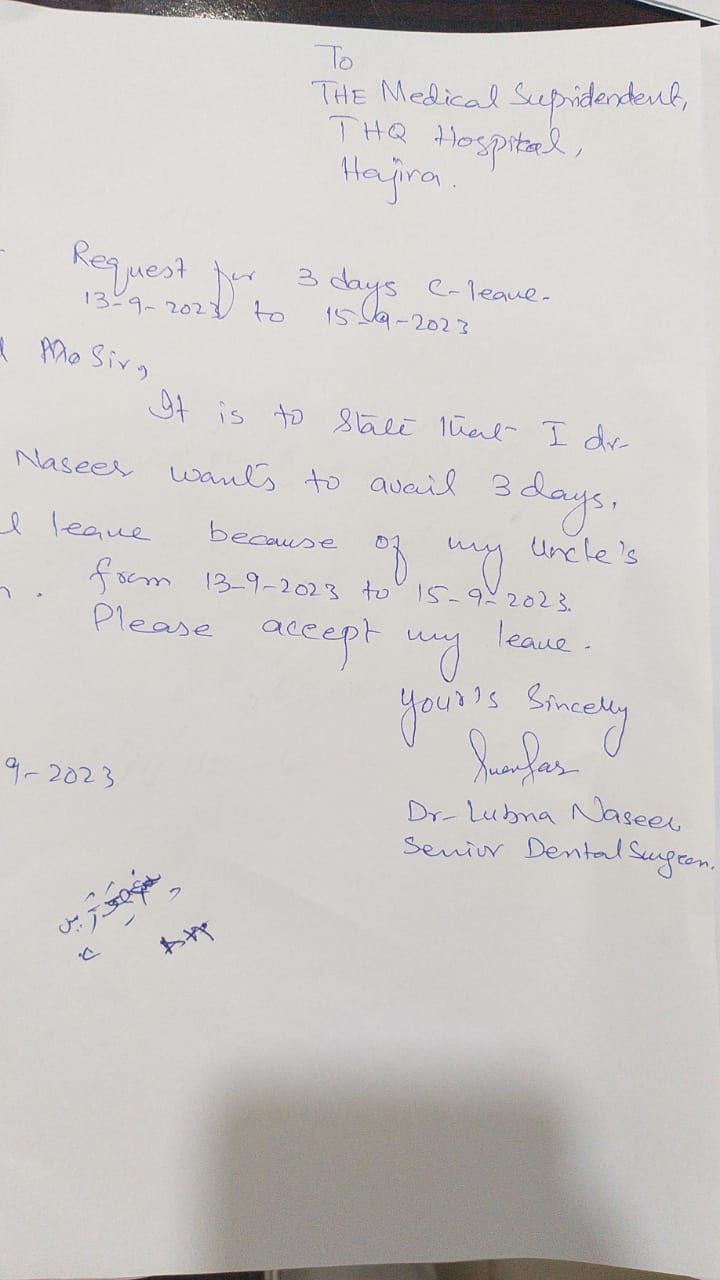 To
THE Medical Supridendent,
THQ Hospital,
Hajira.
Request for 3 days C-leave-
13-9-2023 to 15-9-2023
Sir,
It is to state that I dr-
Naseer wants to avail 3 days,
leave because of my Uncle's
from 13-9-2023 to 15-9-2023.
Please accept my leave.
Your's Sincelly
9-2023
Dr- Lubna Naseer
Senior Dental Surgeon.